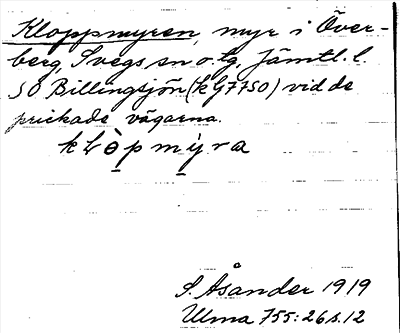 Kloppmyren, myr i Över-
berg, Svegs sn o. tg, Jämtl. l.
SO Billingsjön (k G7750) vid de
prickade vägarna.
klòpmýra
S. Åsander 1919
Ulma 755:26 s. 12